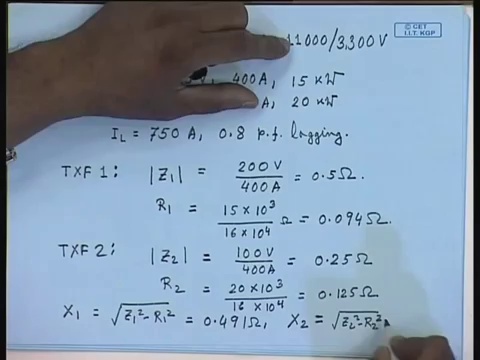 11000/3,300 V
© CET
I.I.T. KGP
400A, 15 kW
A, 20 kW
I_L = 750 A, 0.8 p.f lagging.
TXF 1: |Z₁| = 200 V / 400 A = 0.5 Ω.
R₁ = 15 × 10³ / 16 × 10⁴ Ω = 0.094 Ω.
TXF 2: |Z₂| = 100 V / 400 A = 0.25 Ω
R₂ = 20 × 10³ / 16 × 10⁴ = 0.125 Ω
X₁ = √(Z₁² - R₁²) = 0.491 Ω, X₂ = √(Z₂² - R₂²)